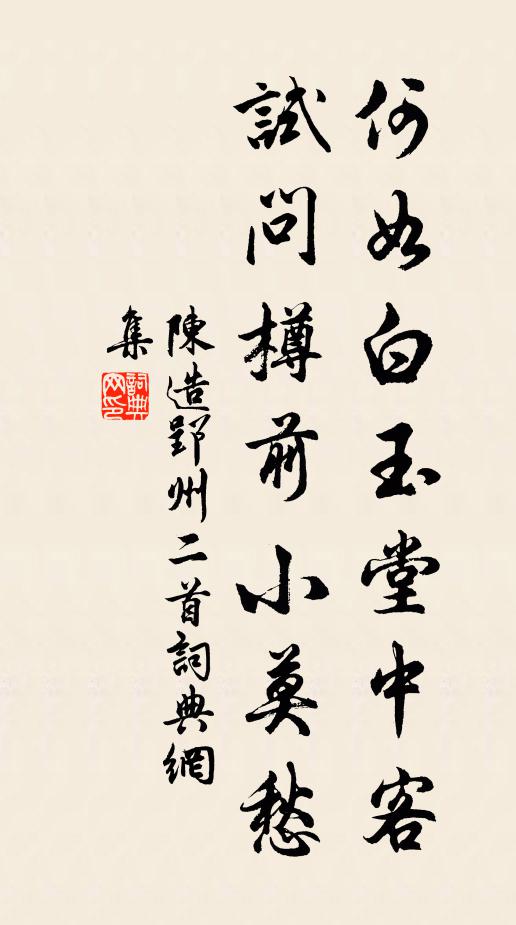 何如白玉堂中客
試問樽前小莫愁
陳造郢州二首詞典網
集
詞典
网印